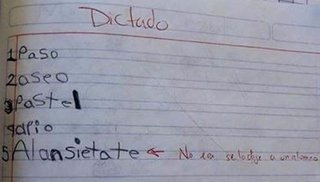 Dictado
1 Paso
2 oseo
3 Pastel
4 apio
5 Alansietate ← No era se lo dije a un alumno